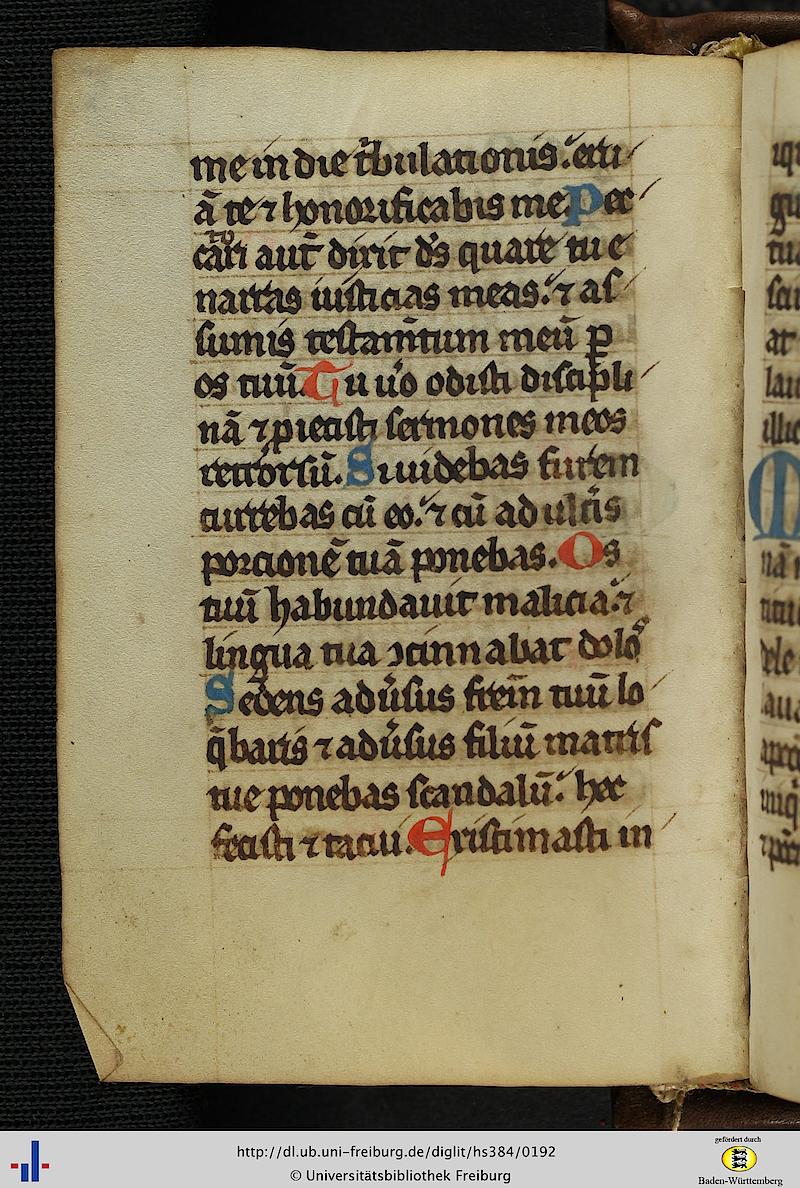 me in die t̾bulationis. erū
ā te ⁊ honorificabis me. Pec
cat̾i aut̄ dixit d̄s quare tu e
narras iusticias meas. ⁊ as
sumis testam̄tum meū p̲
os tuū. Tu u̾o odisti discipli
nā ⁊ ꝓiecisti sermones meos
retrorsū. Si uidebas furem
currebas cū eo. ⁊ cū adult̾is
porcionē tuā ponebas. Os
tuū habundauit malicia. ⁊
lingua tua ɔcinnabat dolo᷒
Sedens adu̾sus fr̄em tuū lo
q̄baris ⁊ adu̾sus filiū matris
tue ponebas scandalū. hec
fecisti ⁊ tacui. Existimasti in
http://dl.ub.uni-freiburg.de/diglit/hs384/0192
© Universitätsbibliothek Freiburg
gefördert durch
Baden-Württemberg